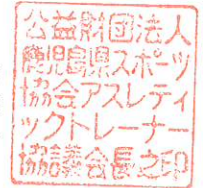 公益財団法人
鹿児島県スポーツ
協会アスレティ
ックトレーナー
協議会長之印